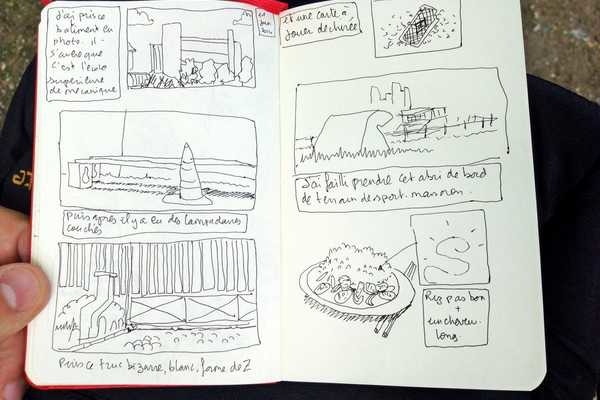 J'ai pris ce
bâtiment en
photo. il
s'avère que
c'est l'école
supérieure
de mécanique
Puis après il y a eu des
couchés
Puis ce truc bizarre, blanc, forme de Z
et une carte à
jouer déchirée
J'ai failli prendre cet abri de bord
de terrain de sport. mais non.
S
Riz pas bon
+
un cheveu
long.